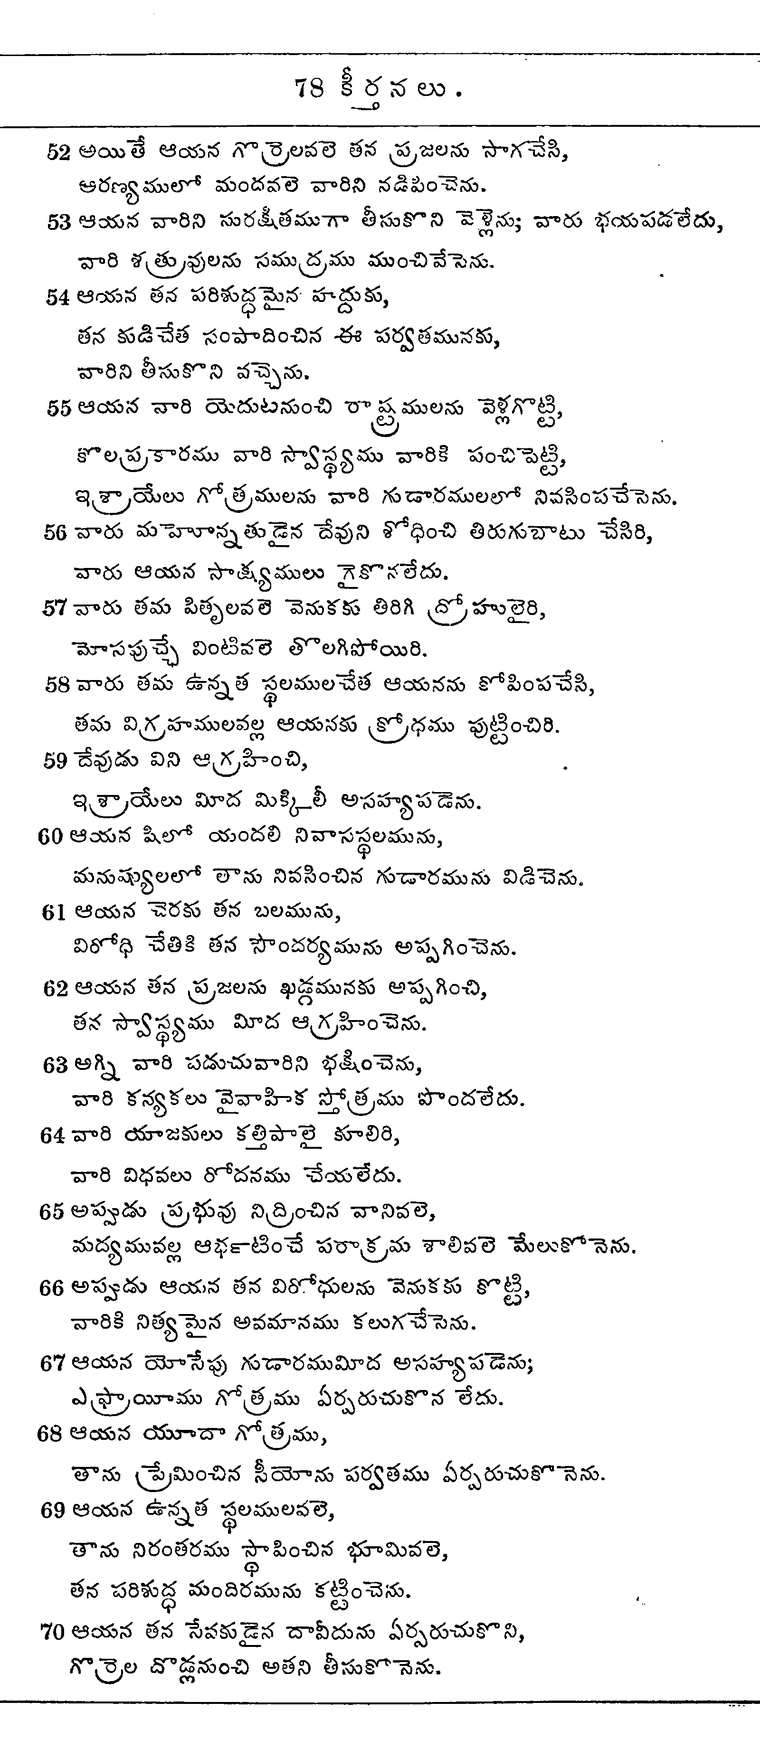 78 కీర్తనలు.
52 అయితే ఆయన గొర్రెలవలె తన ప్రజలను సాగచేసి,
ఆరణ్యములో మందవలె వారిని నడిపించెను.
53 ఆయన వారిని సురక్షితముగా తీసుకొని వెళ్లెను; వారు భయపడలేదు,
వారి శత్రువులను సముద్రము ముంచివేసెను.
54 ఆయన తన పరిశుద్ధమైన హద్దుకు,
తన కుడిచేత సంపాదించిన ఈ పర్వతమునకు,
వారిని తీసుకొని వచ్చెను.
55 ఆయన వారి యెదుటనుంచి రాష్ట్రములను వెళ్లగొట్టి,
కొలప్రకారము వారి స్వాస్థ్యము వారికి పంచిపెట్టి,
ఇశ్రాయేలు గోత్రములను వారి గుడారములలో నివసింపచేసెను.
56 వారు మహోన్నతుడైన దేవుని శోధించి తిరుగుబాటు చేసిరి,
వారు ఆయన సాక్ష్యములు గైకొనలేదు.
57 వారు తమ పితృలవలె వెనుకకు తిరిగి ద్రోహులైరి,
మోసపుచ్ఛే వింటివలె తొలగిపోయిరి.
58 వారు తమ ఉన్నత స్థలములచేత ఆయనను కోపింపచేసి,
తమ విగ్రహములవల్ల ఆయనకు క్రోధము పుట్టించిరి.
59 దేవుడు విని ఆగ్రహించి,
ఇశ్రాయేలు మీద మిక్కిలీ అసహ్యపడెను.
60 ఆయన షిలో యందలి నివాసస్థలమును,
మనుష్యులలో తాను నివసించిన గుడారమును విడిచెను.
61 ఆయన చెరకు తన బలమును,
విరోధి చేతికి తన సౌందర్యమును అప్పగించెను.
62 ఆయన తన ప్రజలను ఖడ్గమునకు అప్పగించి,
తన స్వాస్థ్యము మీద ఆగ్రహించెను.
63 అగ్ని వారి పడుచువారిని భక్షించెను,
వారి కన్యకలు వైవాహిక స్తోత్రము పొందలేదు.
64 వారి యాజకులు కత్తిపాలై కూలిరి,
వారి విధవలు రోదనము చేయలేదు.
65 అప్పుడు ప్రభువు నిద్రించిన వానివలె,
మద్యమువల్ల ఆర్భటించే పరాక్రమ శాలివలె మేలుకోనెను.
66 అప్పుడు ఆయన తన విరోధులను వెనుకకు కొట్టి,
వారికి నిత్యమైన అవమానము కలుగచేసెను.
67 ఆయన యోసేపు గుడారముమీద అసహ్యపడెను;
ఎఫ్రాయీము గోత్రము ఏర్పరుచుకొన లేదు.
68 ఆయన యూదా గోత్రము,
తాను ప్రేమించిన సీయోను పర్వతము ఏర్పరుచుకొనెను.
69 ఆయన ఉన్నత స్థలములవలె,
తాను నిరంతరము స్థాపించిన భూమివలె,
తన పరిశుద్ధ మందిరమును కట్టించెను.
70 ఆయన తన సేవకుడైన దావీదును ఏర్పరుచుకొని,
గొర్రెల దొడ్లనుంచి అతని తీసుకోనెను.